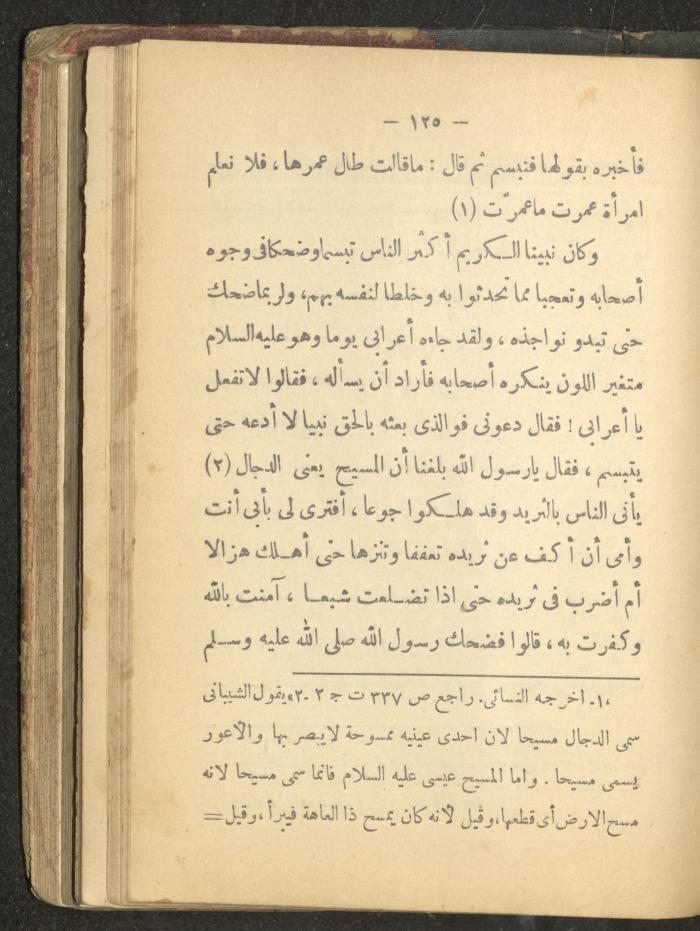 — ١٢٥ —
فأخبره بقولها فتبسم ثم قال : ماقالت طال عمرها ، فلا نعلم
امرأة عمرت ماعمرّت (١)
وكان نبينا الكريم أكثر الناس تبسما وضحكا فى وجوه
أصحابه وتعجبا مما تحدثوا به وخلطا لنفسه بهم، ولربما ضحك
حتى تبدو نواجذه ، ولقد جاءه أعرابى يوما وهو عليه السلام
متغير اللون ينكره أصحابه فأراد أن يسأله ، فقالوا لا تفعل
يا أعرابى ! فقال دعونى فوالذى بعثه بالحق نبيا لا أدعه حتى
يتبسم ، فقال يارسول الله بلغنا أن المسيح يعنى الدجال (٢)
يأتى الناس بالثريد وقد هلكوا جوعا ، أفترى لى بأبى أنت
وأمى أن أكف عن ثريده تعففا وتنزها حتى أهلك هزالا
أم أضرب فى ثريده حتى اذا تضلعت شبعا ، آمنت بالله
وكفرت به ، قالوا فضحك رسول الله صلى الله عليه وسلم
،١ـ اخرجه النسائى. راجع ص ٣٣٧ ت ج ٢ ـ٢» يقول الشيبانى
سمى الدجال مسيحا لان احدى عينيه ممسوحة لايبصر بها والأعور
يسمى مسيحا . واما المسيح عيسى عليه السلام فانما سمى مسيحا لانه
مسح الارض أى قطعها، وقيل لأنه كان يمسح ذا العاهة فيبرأ ، وقيل =